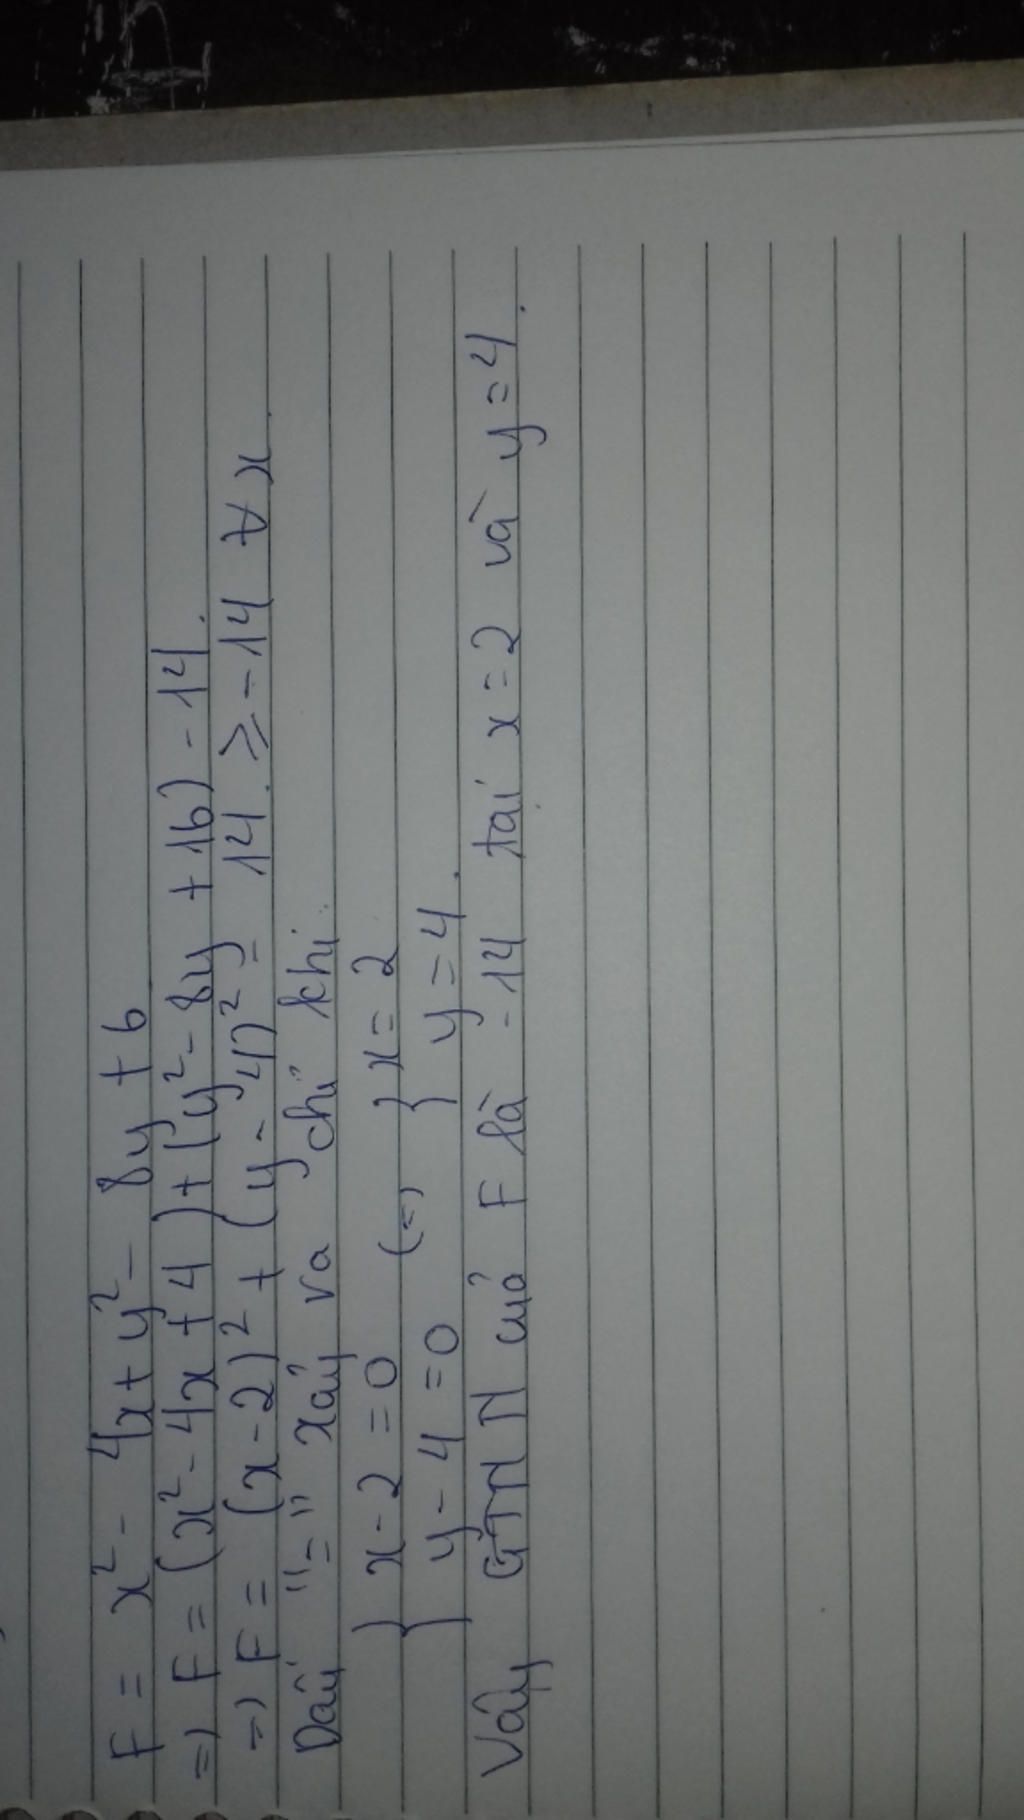 F = x² - 4x + y² - 8y + 6
=) F = (x² - 4x + 4) + (y² - 8y + 16) - 14.
=) F = (x-2)² + (y-4)² - 14. ≥ -14 ∀ x.
Dấu "=" xảy ra chỉ khi.
{ x - 2 = 0 (=) { x = 2
{ y - 4 = 0 { y = 4.
Vậy GTNN của F là -14 tại x = 2 và y = 4.